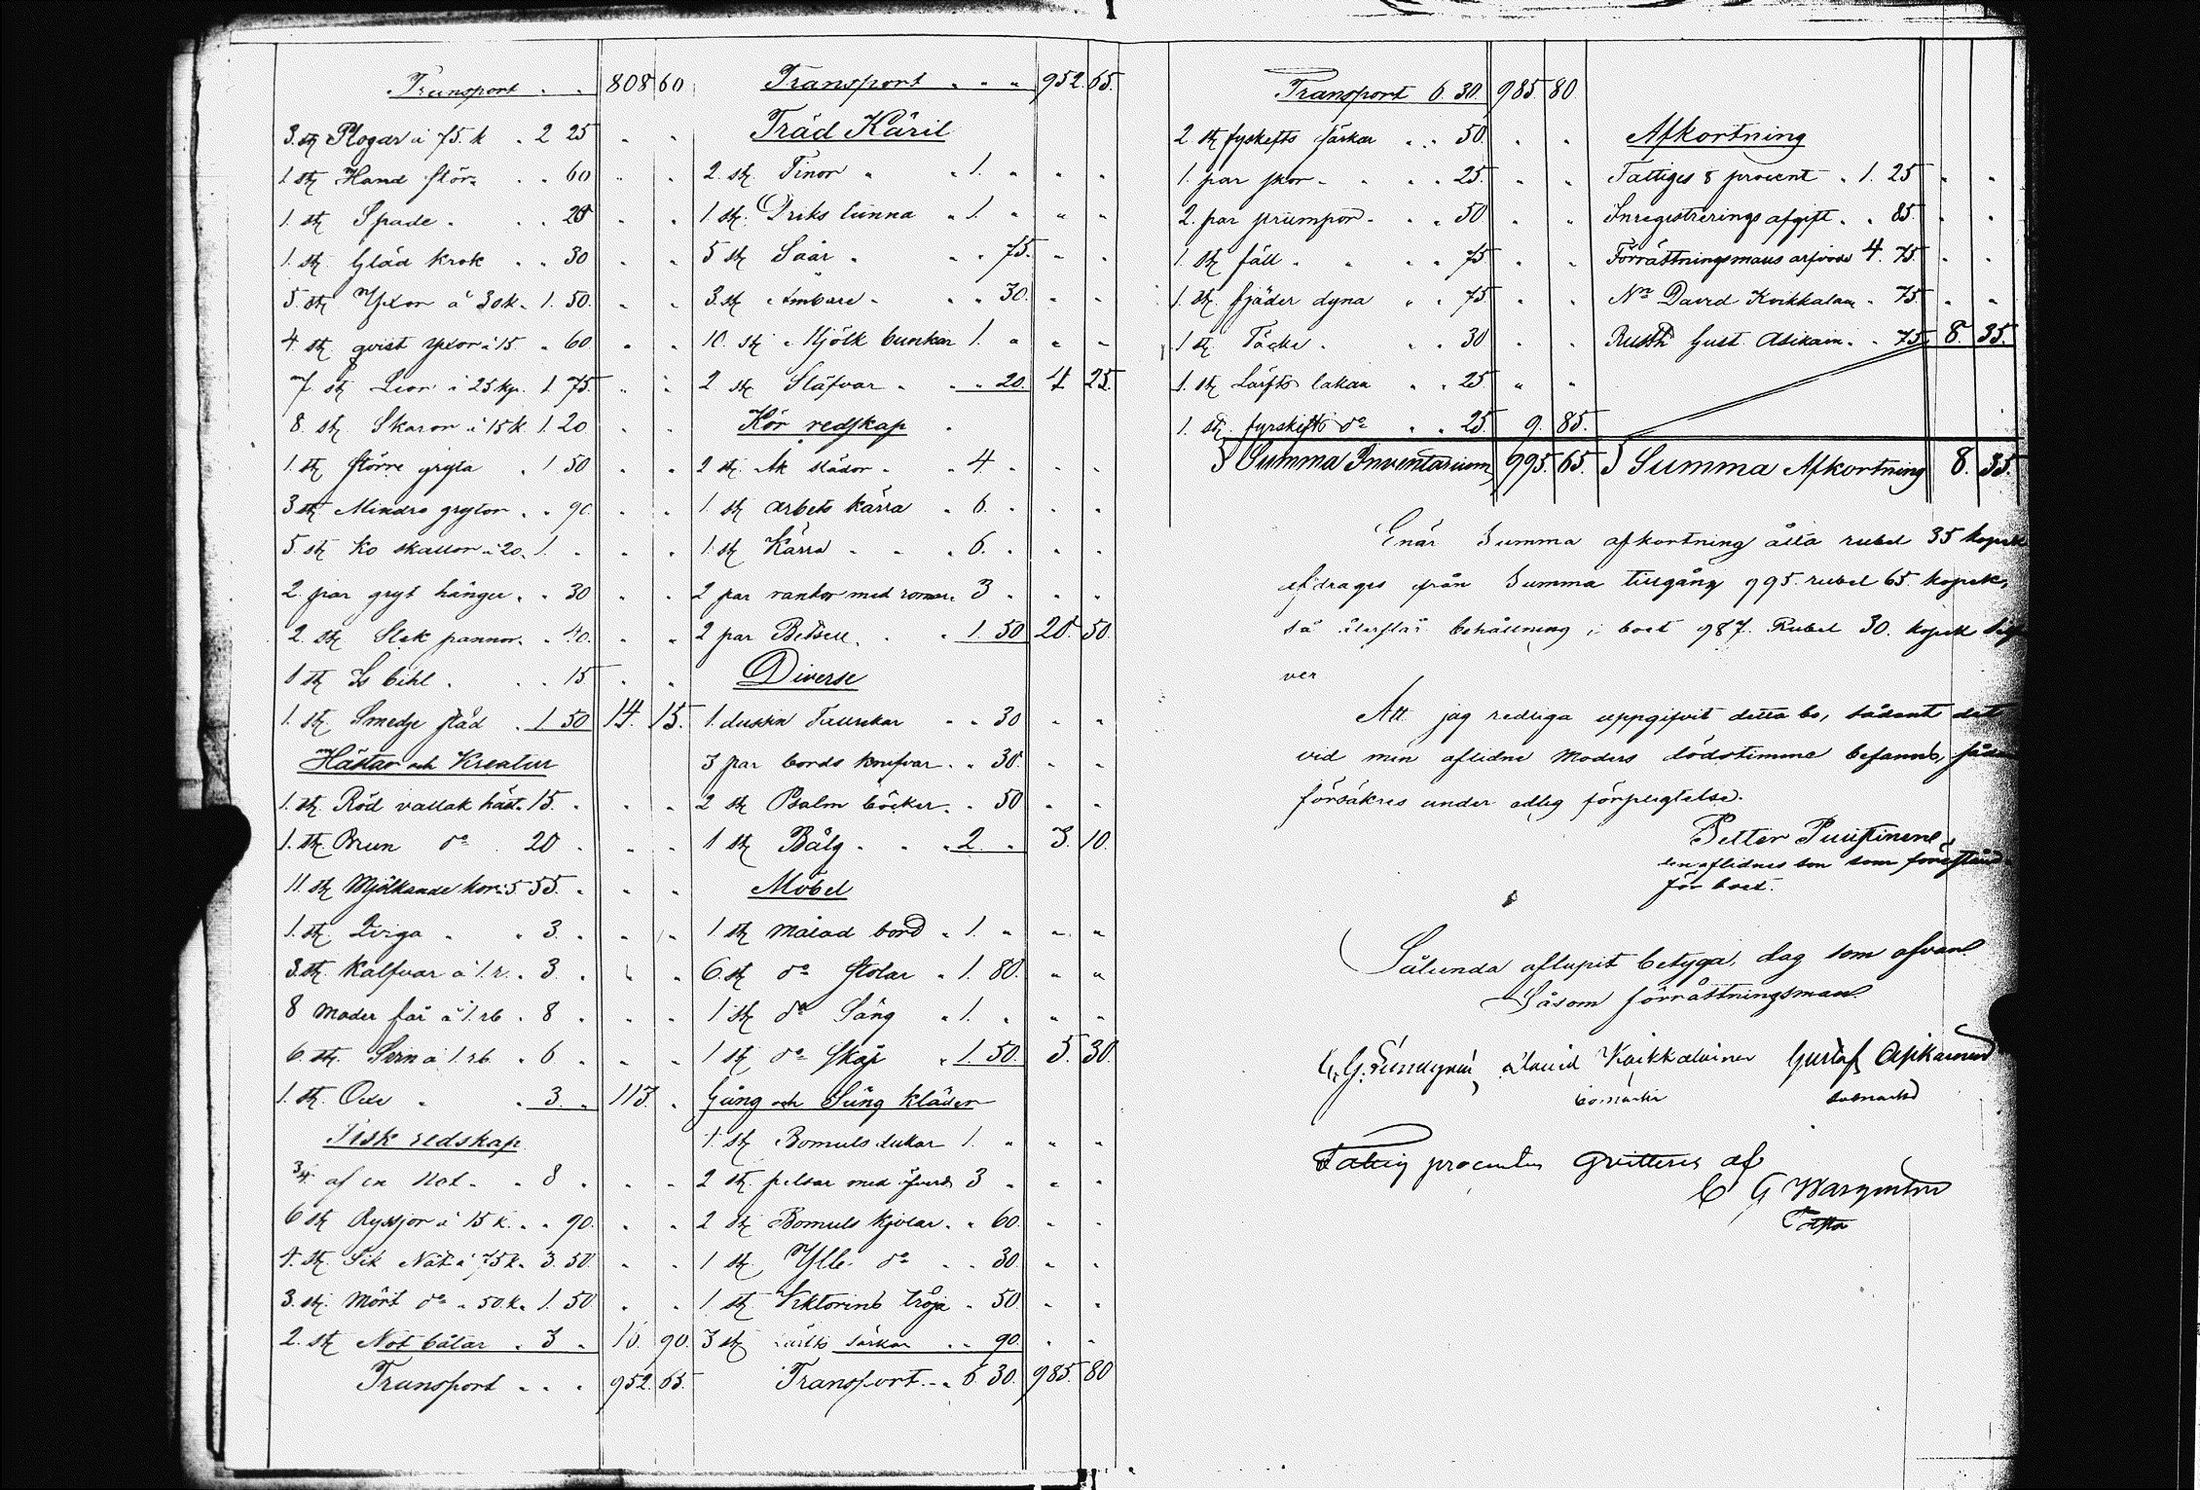 Transport . . 808 60
3. st Plogar á 75. k . 2 25 . .
1. st Hand stör . . 60 . .
1. st Spade . . . 20 . .
1. st Gläd krok . . 30 . .
5. st Yxor á 30 k. 1. 50. . .
4. st qvist yxor á 15 . 60 . .
7 st Lior á 25 kp. 1 75. . .
8. st Skaror á 15 k 1. 20 . .
1. st större gryta . 1 50 . .
3 st Mindre grytor . . 90. . .
5. st Ko skällor á 20. 1. . . .
2 par gryt hängen . . 30 . .
2. st Stek pannor . . 40. . .
1 st Is bihl . . . 15 . .
1. st Smedje städ . 1 50 14. 15.
Hästar och Kreatur
1. st Röd vallak häst. 15. . . .
1. st Brun do . 20 . . .
11. st Mjölkande kor á 5 55. . . .
1. st Qviga . . 3. . . .
3. st Kalfvar á 1 r. . 3. . . .
8 moder får á 1. rb . 8 . . .
6. st. á 1. rb . 6 . . .
1. st. Oxe . . 3. . 113. .
Fisk redskap
3/4 af en Not . . 8 . . .
6 st Ryssjor á 15 k. . . 90. . .
4. st Sik Nät á 75 k. 3. 50. . .
3. st. Mört do . 50. k. 1. 50 . .
2. st Not båtar . 3 . 16. 90.
Transport . . . 952. 65.
Transport . . . 952. 65.
Träd Käril
2. st Tinor . . 1. . . .
1 st. Driks tunna . 1. . . .
5 st Såar . . . 75. . .
3. st Ämbare . . . 30. . .
10. st Mjölk bunkar 1. . . .
2 st Stäfvar . . . 20. 4 25.
Kör redskap .
2 st. Åk slädor . . 4 . . .
1 st arbets kärra . 6. . . .
1. st Kärra . . . 6. . . .
2 par rankor med 3 . . .
2 par Betsell . . 1. 50 20. 50.
Diverse
1. dussin Talrickar . . 30 . .
3 par bords knifvar . . 30. . .
2 st Psalm böcker . . 50 . .
1 st Bälg . . . 2 . 3. 10.
Möbel
1 st målad bord . 1. . . .
6. st do Stolar . 1. 80. . .
1 st do Säng . 1. . . .
1 st do Skåp . 1. 50. 5. 30.
Gång och Säng kläder
4. st Bomuls dukar 1. . . .
2 st. pelsar med 3 . . .
2 st Bomuls kjolar . . 60. . .
1 st Ylle do . . 30. . .
1 st tröja . 50. . .
3 st särkar . . 90. . .
Transport . . 6. 30. 985. 80
Transport 6. 30. 985. 80.
2 st fyskefts särkar . . 50. . .
1. par skor . . . . 25. . .
2. par strumpor . . . 50 . .
1. st fäll . . . . 75 . .
1. st fjäder dyna . . 75 . .
1 st Täcke . . . 30 . .
1. st Lärfts lakan . . 25 . .
1. st fyrskefts do . . 25 9. 85.
S Summa Inventarium 995. 65.
Afkortning
Fattiges 8 procent . 1. 25 . .
Inregistrerings afgift . . 85. . .
Förrättningsmans arfvode 4. 75. . .
Nn David Koikkalain . 75. . .
Rusth Gust. Asikain . . 75. 8. 35.
S Summa Afkortning 8. 35.
Enär Summa afkortning åtta rubel 35 kopek
afdrages från Summa tillgång 995. rubel 65. kopek,
så återstår behållning i boet 987. Rubel 30. kopek
ver
Att jag redliga uppgifvit detta bo, sådant det
vid min aflidne Moders dödstimme befanns,
försäkras under edlig förpligtelse.
Petter Puustinen
den aflidnes son som förestånd.
för boet.
Sålunda aflupit betyga, dag som ofvan
Såsom förrättningsman
David Koikkalainen Gustaf Asikainen
bomärke bomärke
Fattig procenten qvitteras af
C G Wargentin